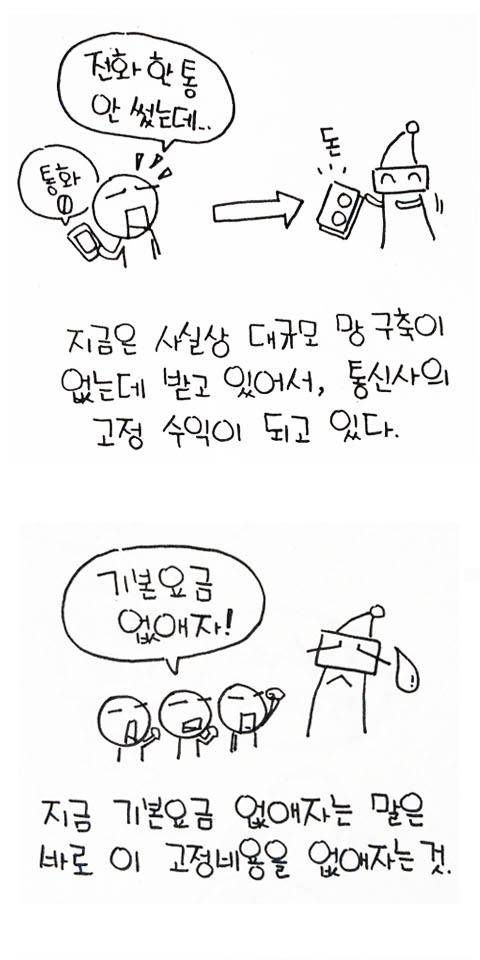 전화 한 통
안 썼는데...
통화
0
돈
지금은 사실상 대규모 망 구축이
없는데 받고 있어서, 통신사의
고정 수익이 되고 있다.
기본요금
없애자!
지금 기본요금 없애자는 말은
바로 이 고정비용을 없애자는 것.